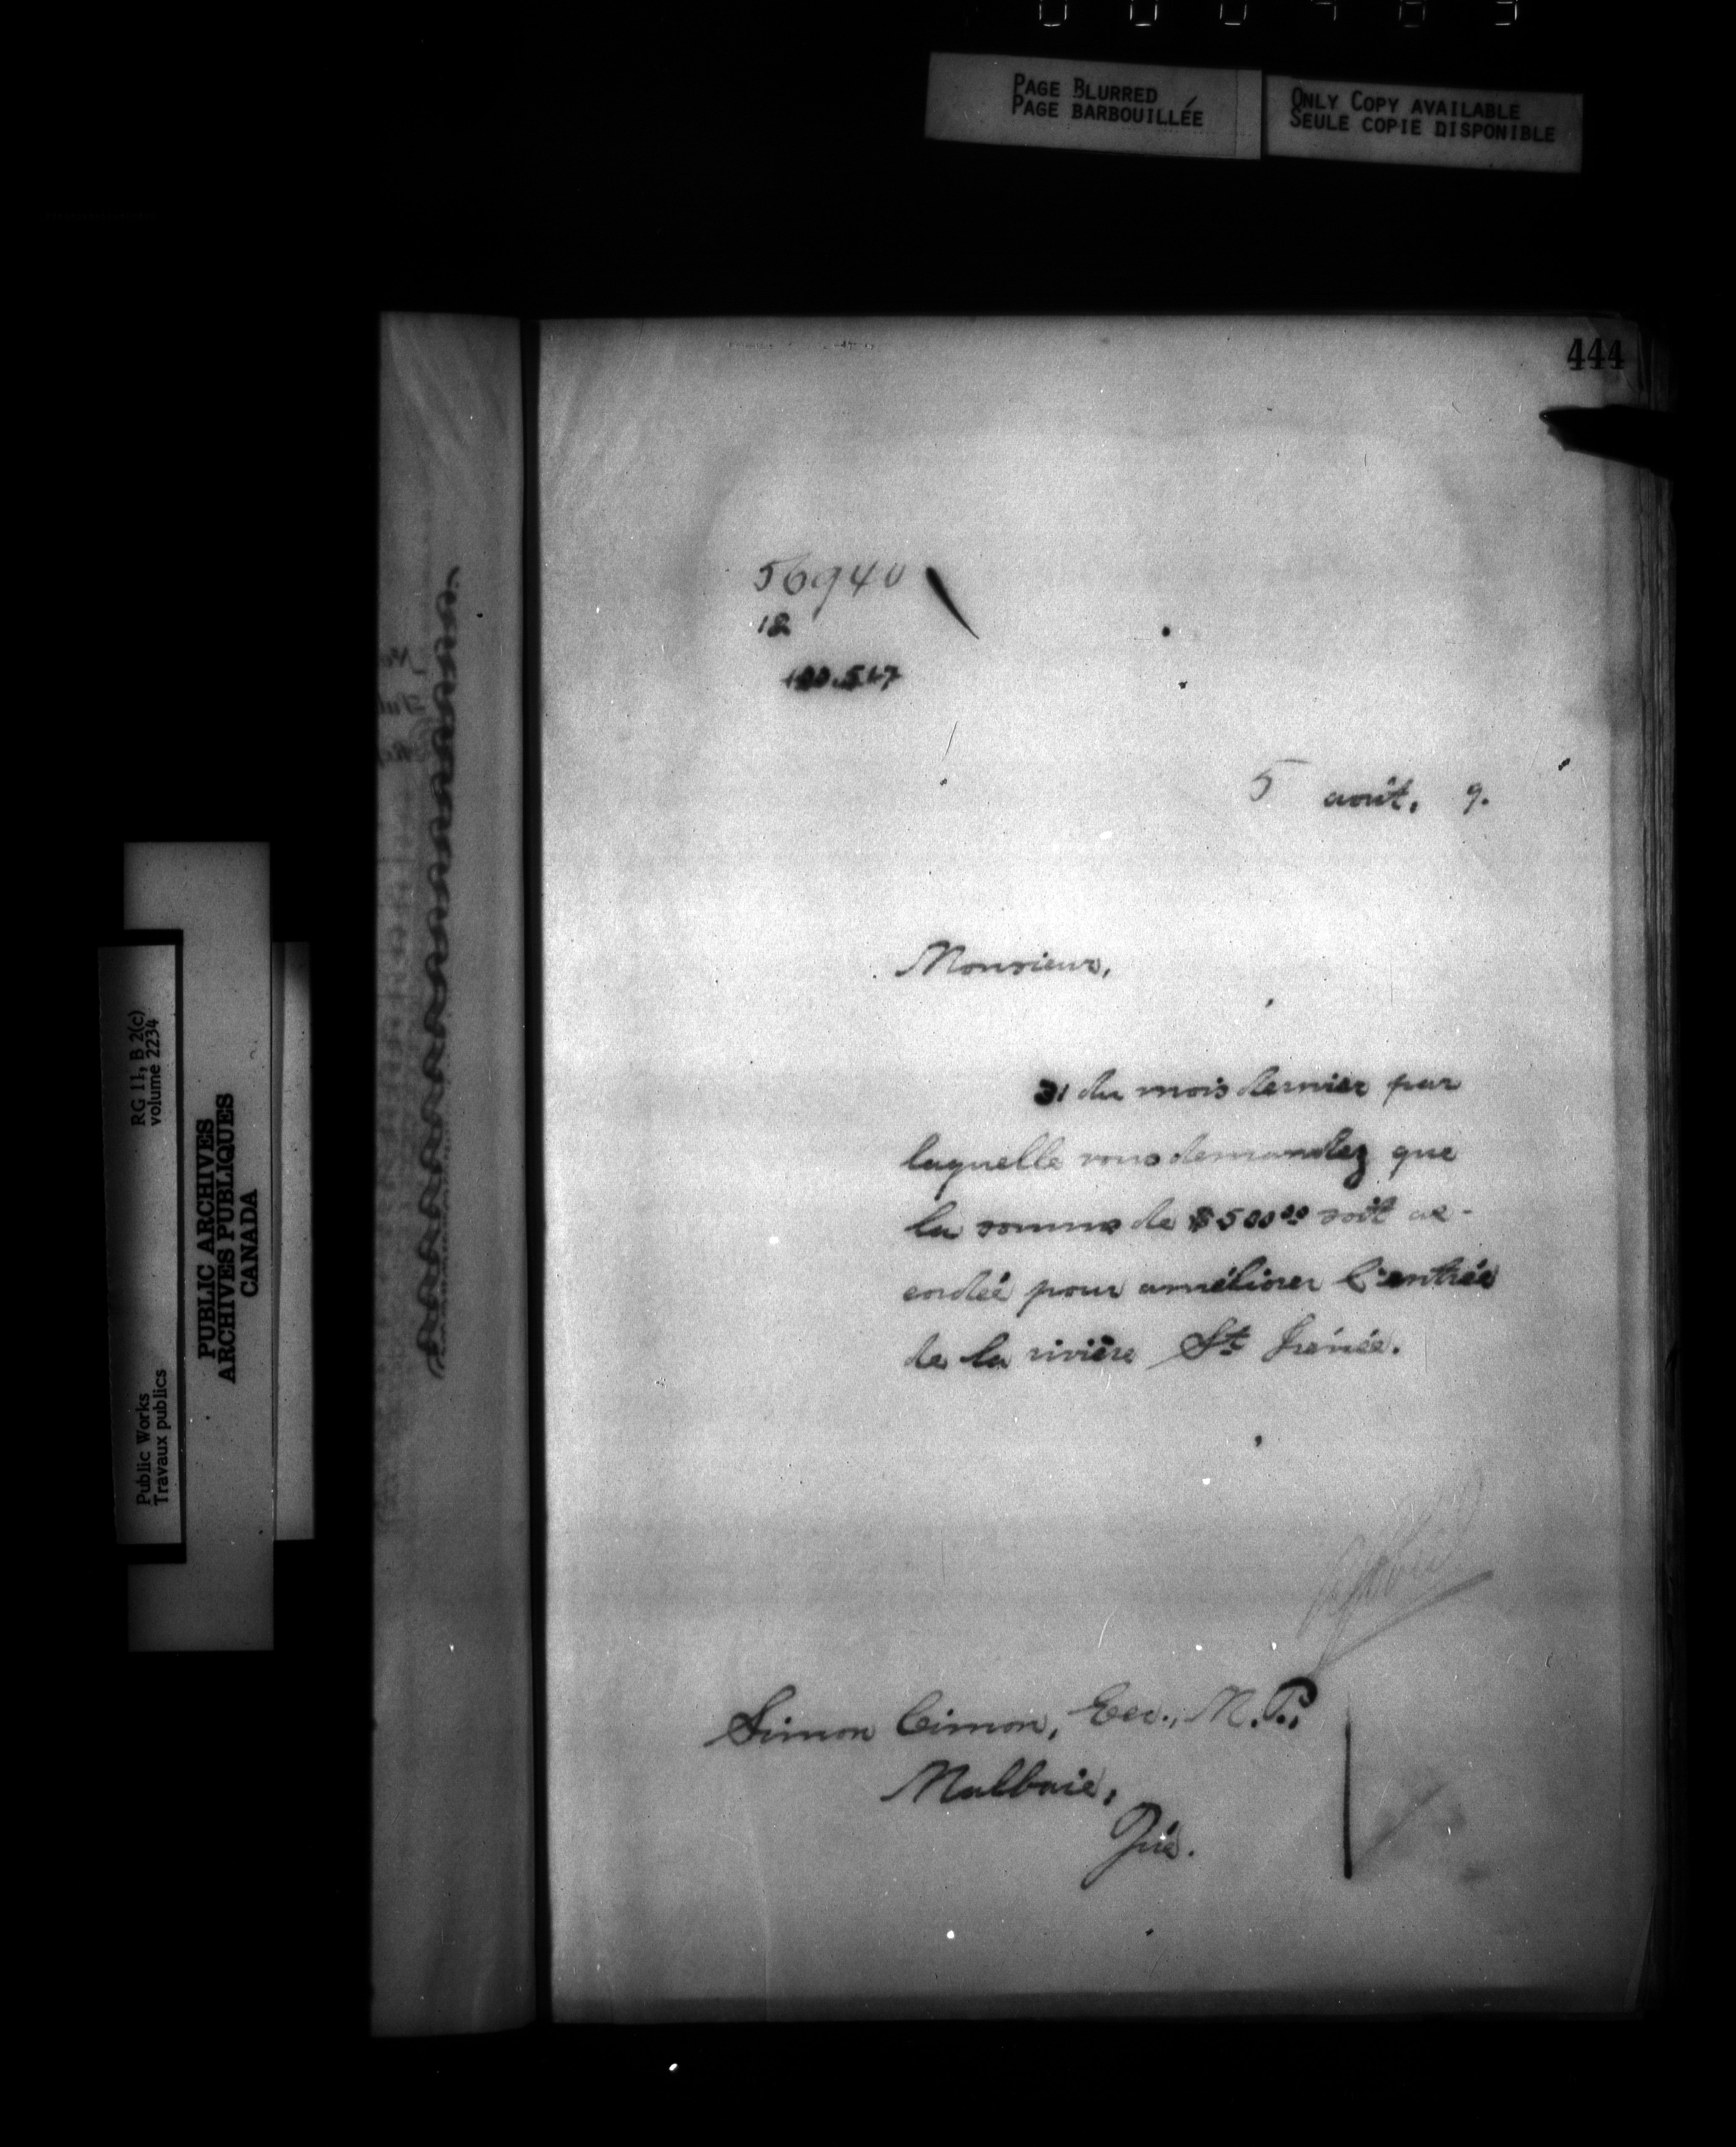 PAGE BLURRED
PAGE BARBOUILLÉE
ONLY COPY AVAILABLE
SEULE COPIE DISPONIBLE
444
56940
12
5 août, 9.
Monsieur,
31 du mois dernier par
laquelle vous demandez que
la somme de $500.00 soit ac-
cordée pour améliorer l'entrée
de la rivière St Irénée.
Simon Cimon, Ecr., M.P.,
Malbaie,
Qué.
RG 11, B 2(c)
volume 2234
Public Works
Travaux publics
PUBLIC ARCHIVES
ARCHIVES PUBLIQUES
CANADA